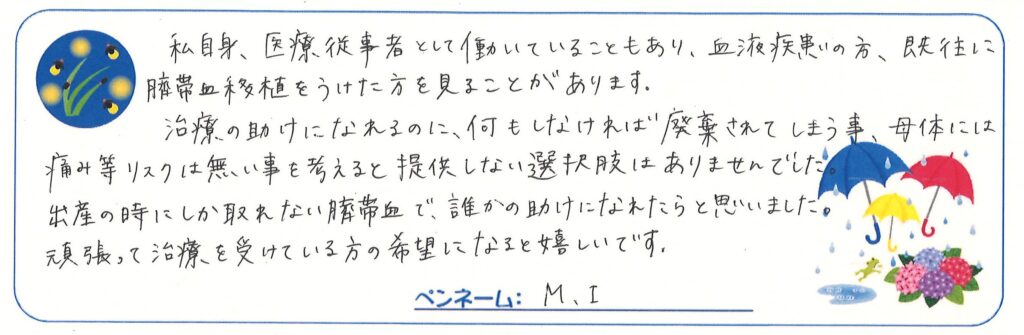 私自身、医療従事者として働いていることもあり、血液疾患の方、既往に
臍帯血移植をうけた方を見ることがあります。
治療の助けになれるのに、何もしなければ廃棄されてしまう事、母体には
痛み等リスクは無い事を考えると提供しない選択肢はありませんでした。
出産の時にしか取れない臍帯血で、誰かの助けになれたらと思いました。
頑張って治療を受けている方の希望になると嬉しいです。
ペンネーム: M.I